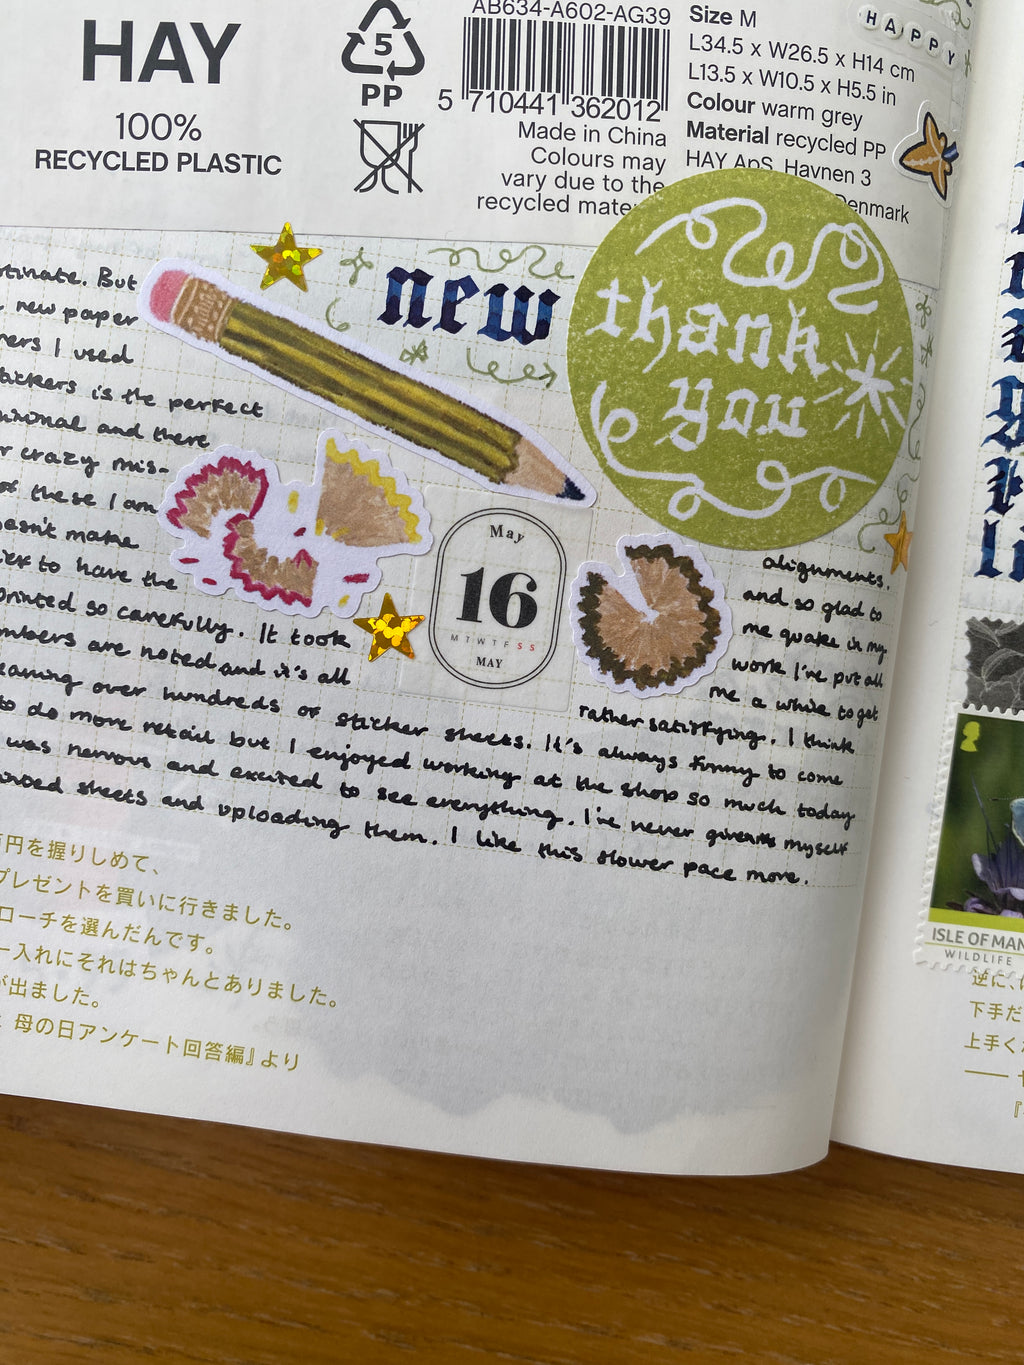 AB634-A602-AG39
HAY
100%
RECYCLED PLASTIC
5
PP
5 710441 362012
Made in China
Colours may
vary due to the
recycled mate
Size M
L34.5 x W26.5 x H14 cm
L13.5 x W10.5 x H5.5 in
Colour warm grey
Material recycled PP
HAY ApS, Havnen 3
Denmark
HAPPY
new
thank
you
May
16
MTWTFSS
MAY
rtunate. But
new paper
ners I used
tickers is the perfect
minimal and there
r crazy mis-
of these I am
oesn't make
to have the
printed so carefully. It took
mbers are noted and it's all
eaning over hundreds of sticker sheets. It's always funny to come
to do more retail but I enjoyed working at the shop so much today
was nervous and excited to see everything. I've never given myself
sheets and uploading them. I like this slower pace more.
alignments.
and so glad to
me quake in my
work I've put all
me a while to get
rather satisfying. I think
円を握りしめて、
プレゼントを買いに行きました。
ローチを選んだんです。
ー入れにそれはちゃんとありました。
が出ました。
母の日アンケート回答編』より
li
ISLE OF MAN
WILDLIFE
逆に、
下手だ
上手く
——
『